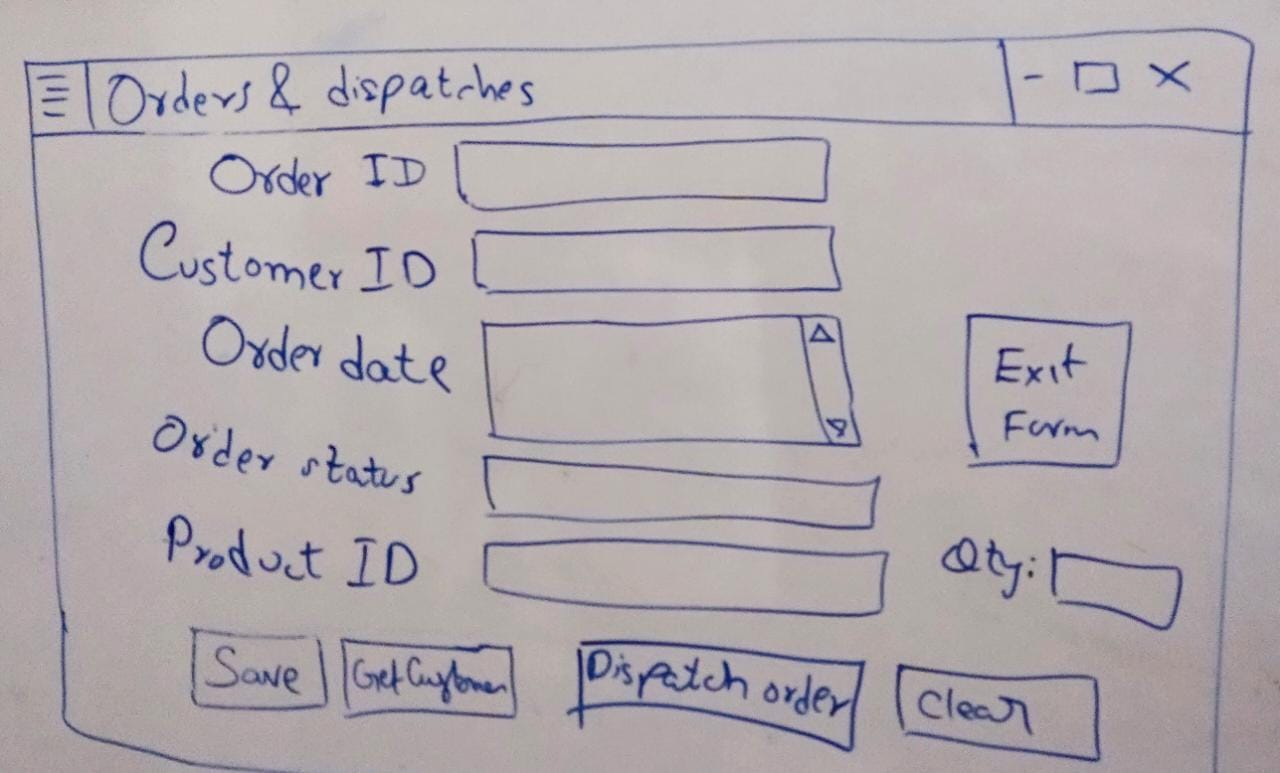 Orders & dispatches
Order ID
Customer ID
Order date
Exit
Form
Order status
Product ID
Qty:
Save
Get Customer
Dispatch order
Clear